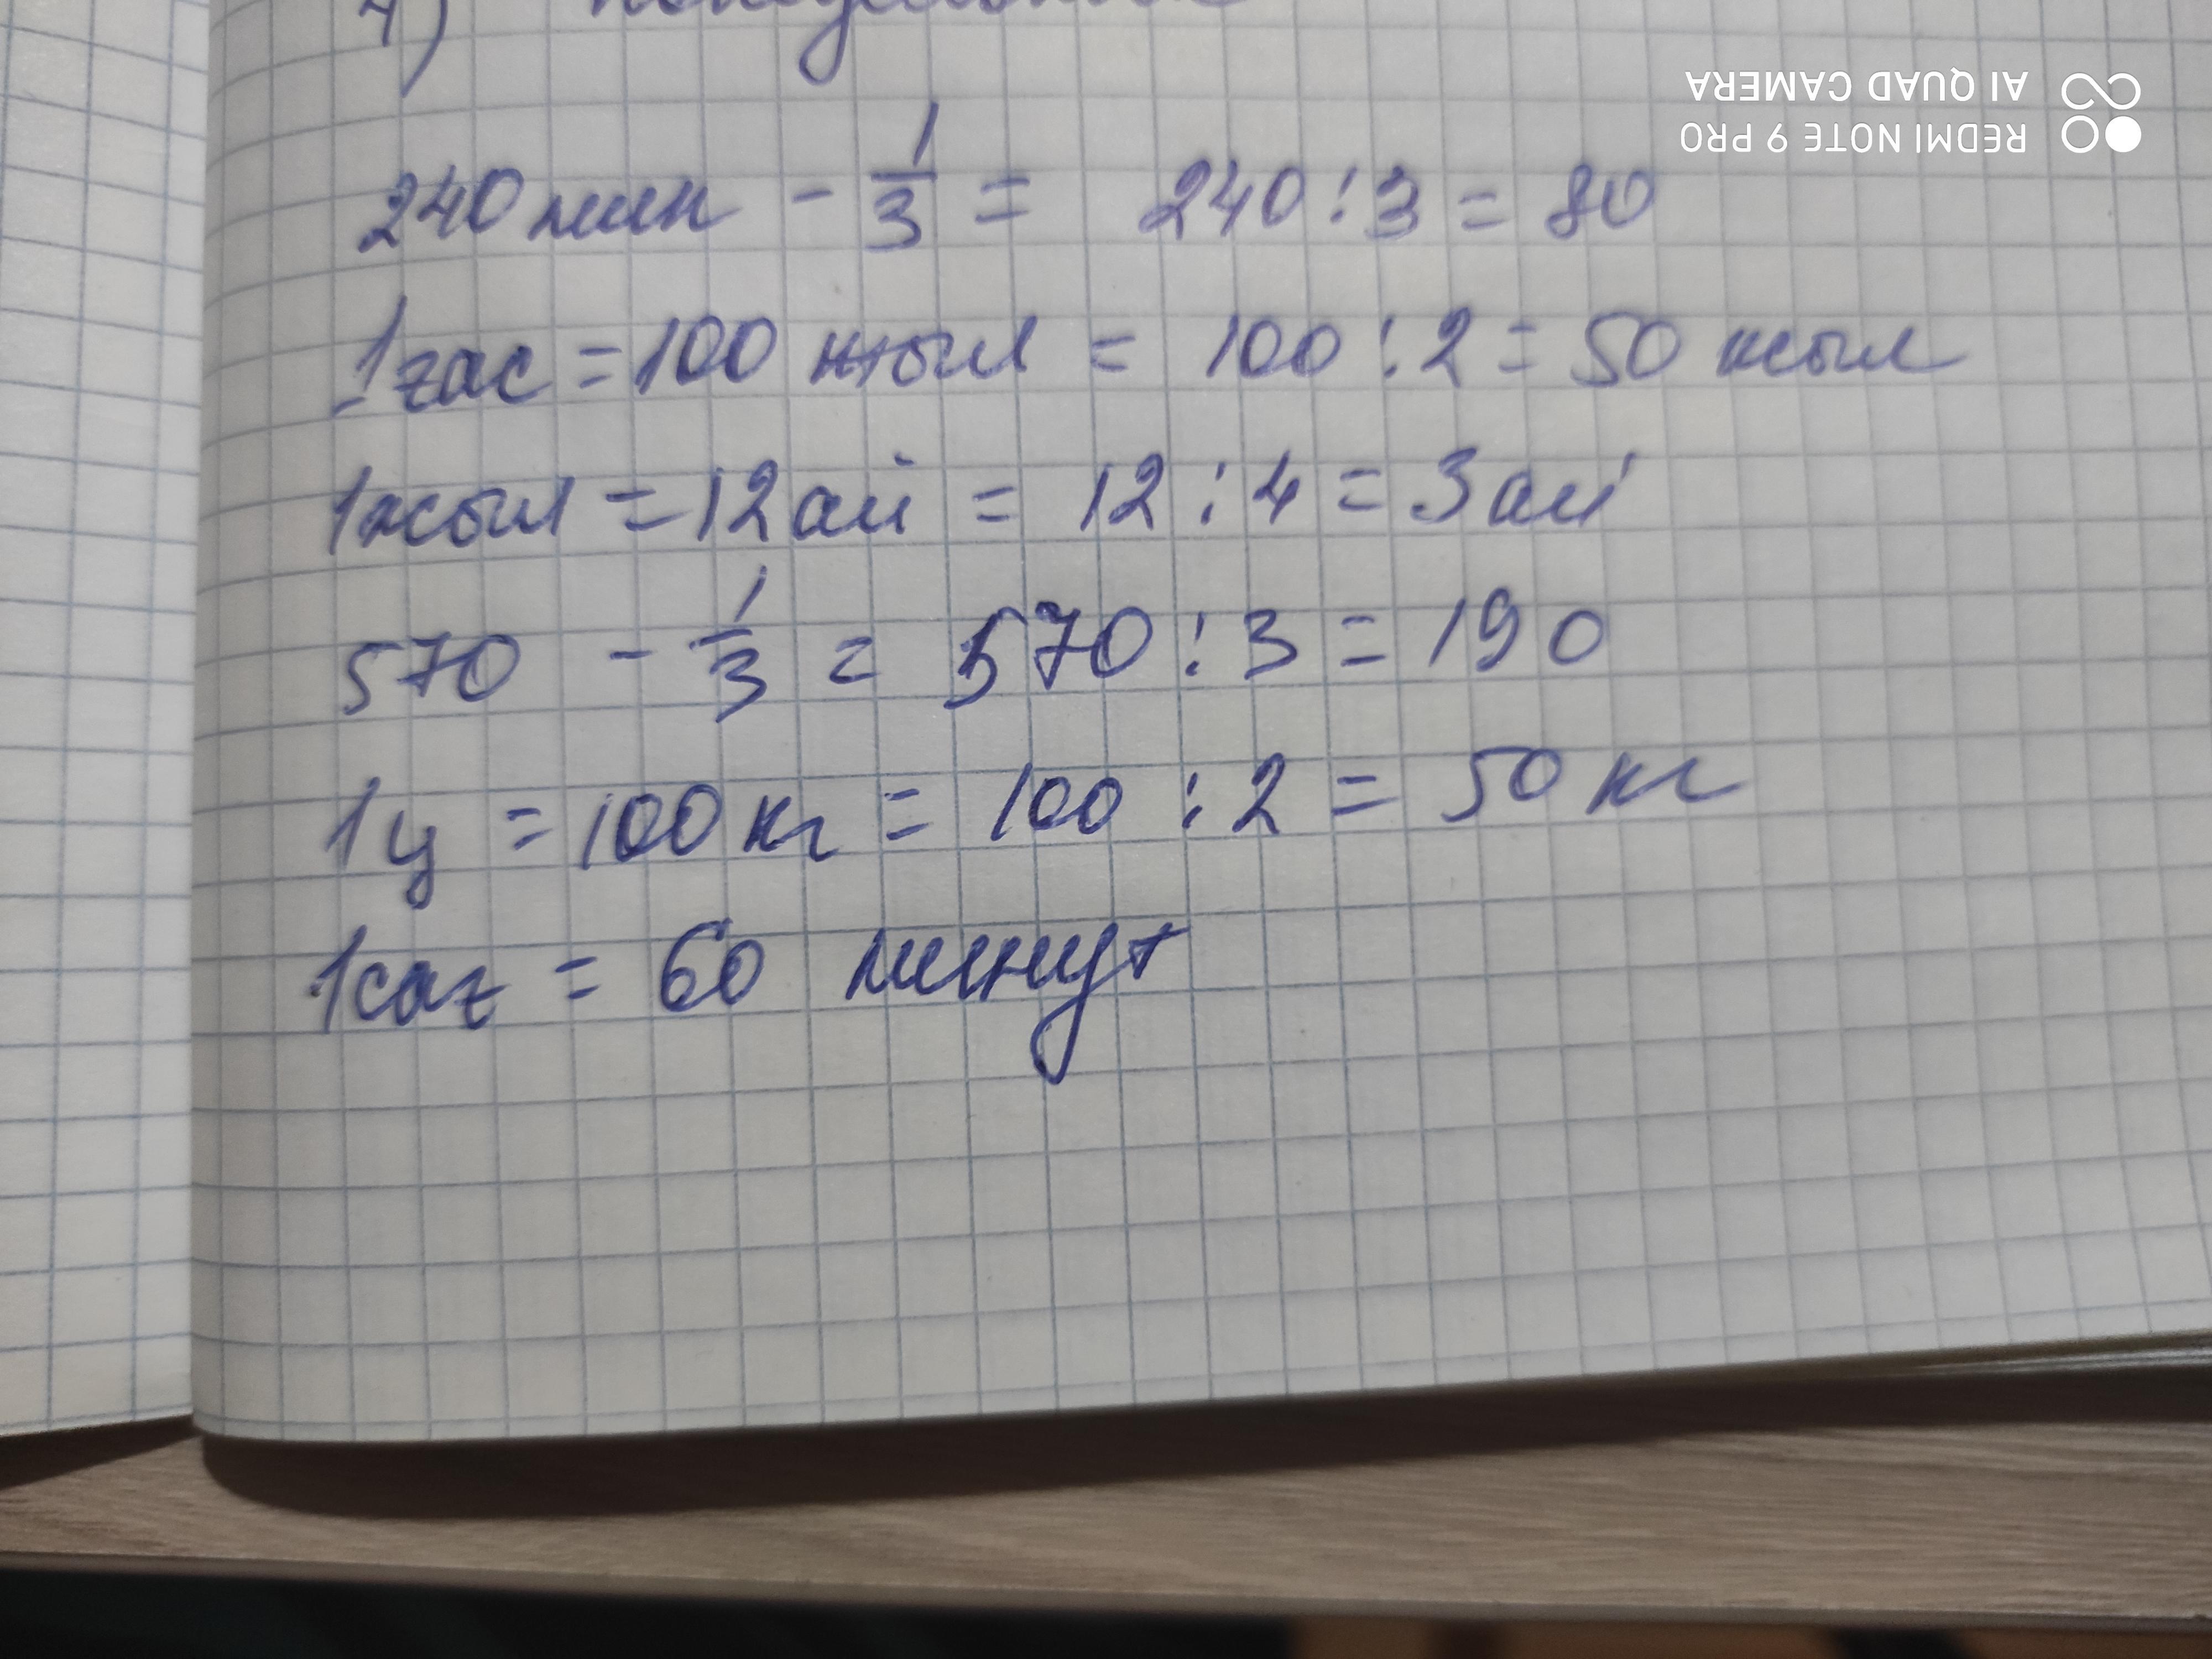 4)
240 мин - 1/3 = 240 : 3 = 80
1 ғас = 100 жыл = 100 : 2 = 50 жыл
1 жыл = 12 ай = 12 : 4 = 3 ай
570 - 1/3 = 570 : 3 = 190
1 ц = 100 кг = 100 : 2 = 50 кг
1 сағ = 60 минут
REDMI NOTE 9 PRO
AI QUAD CAMERA